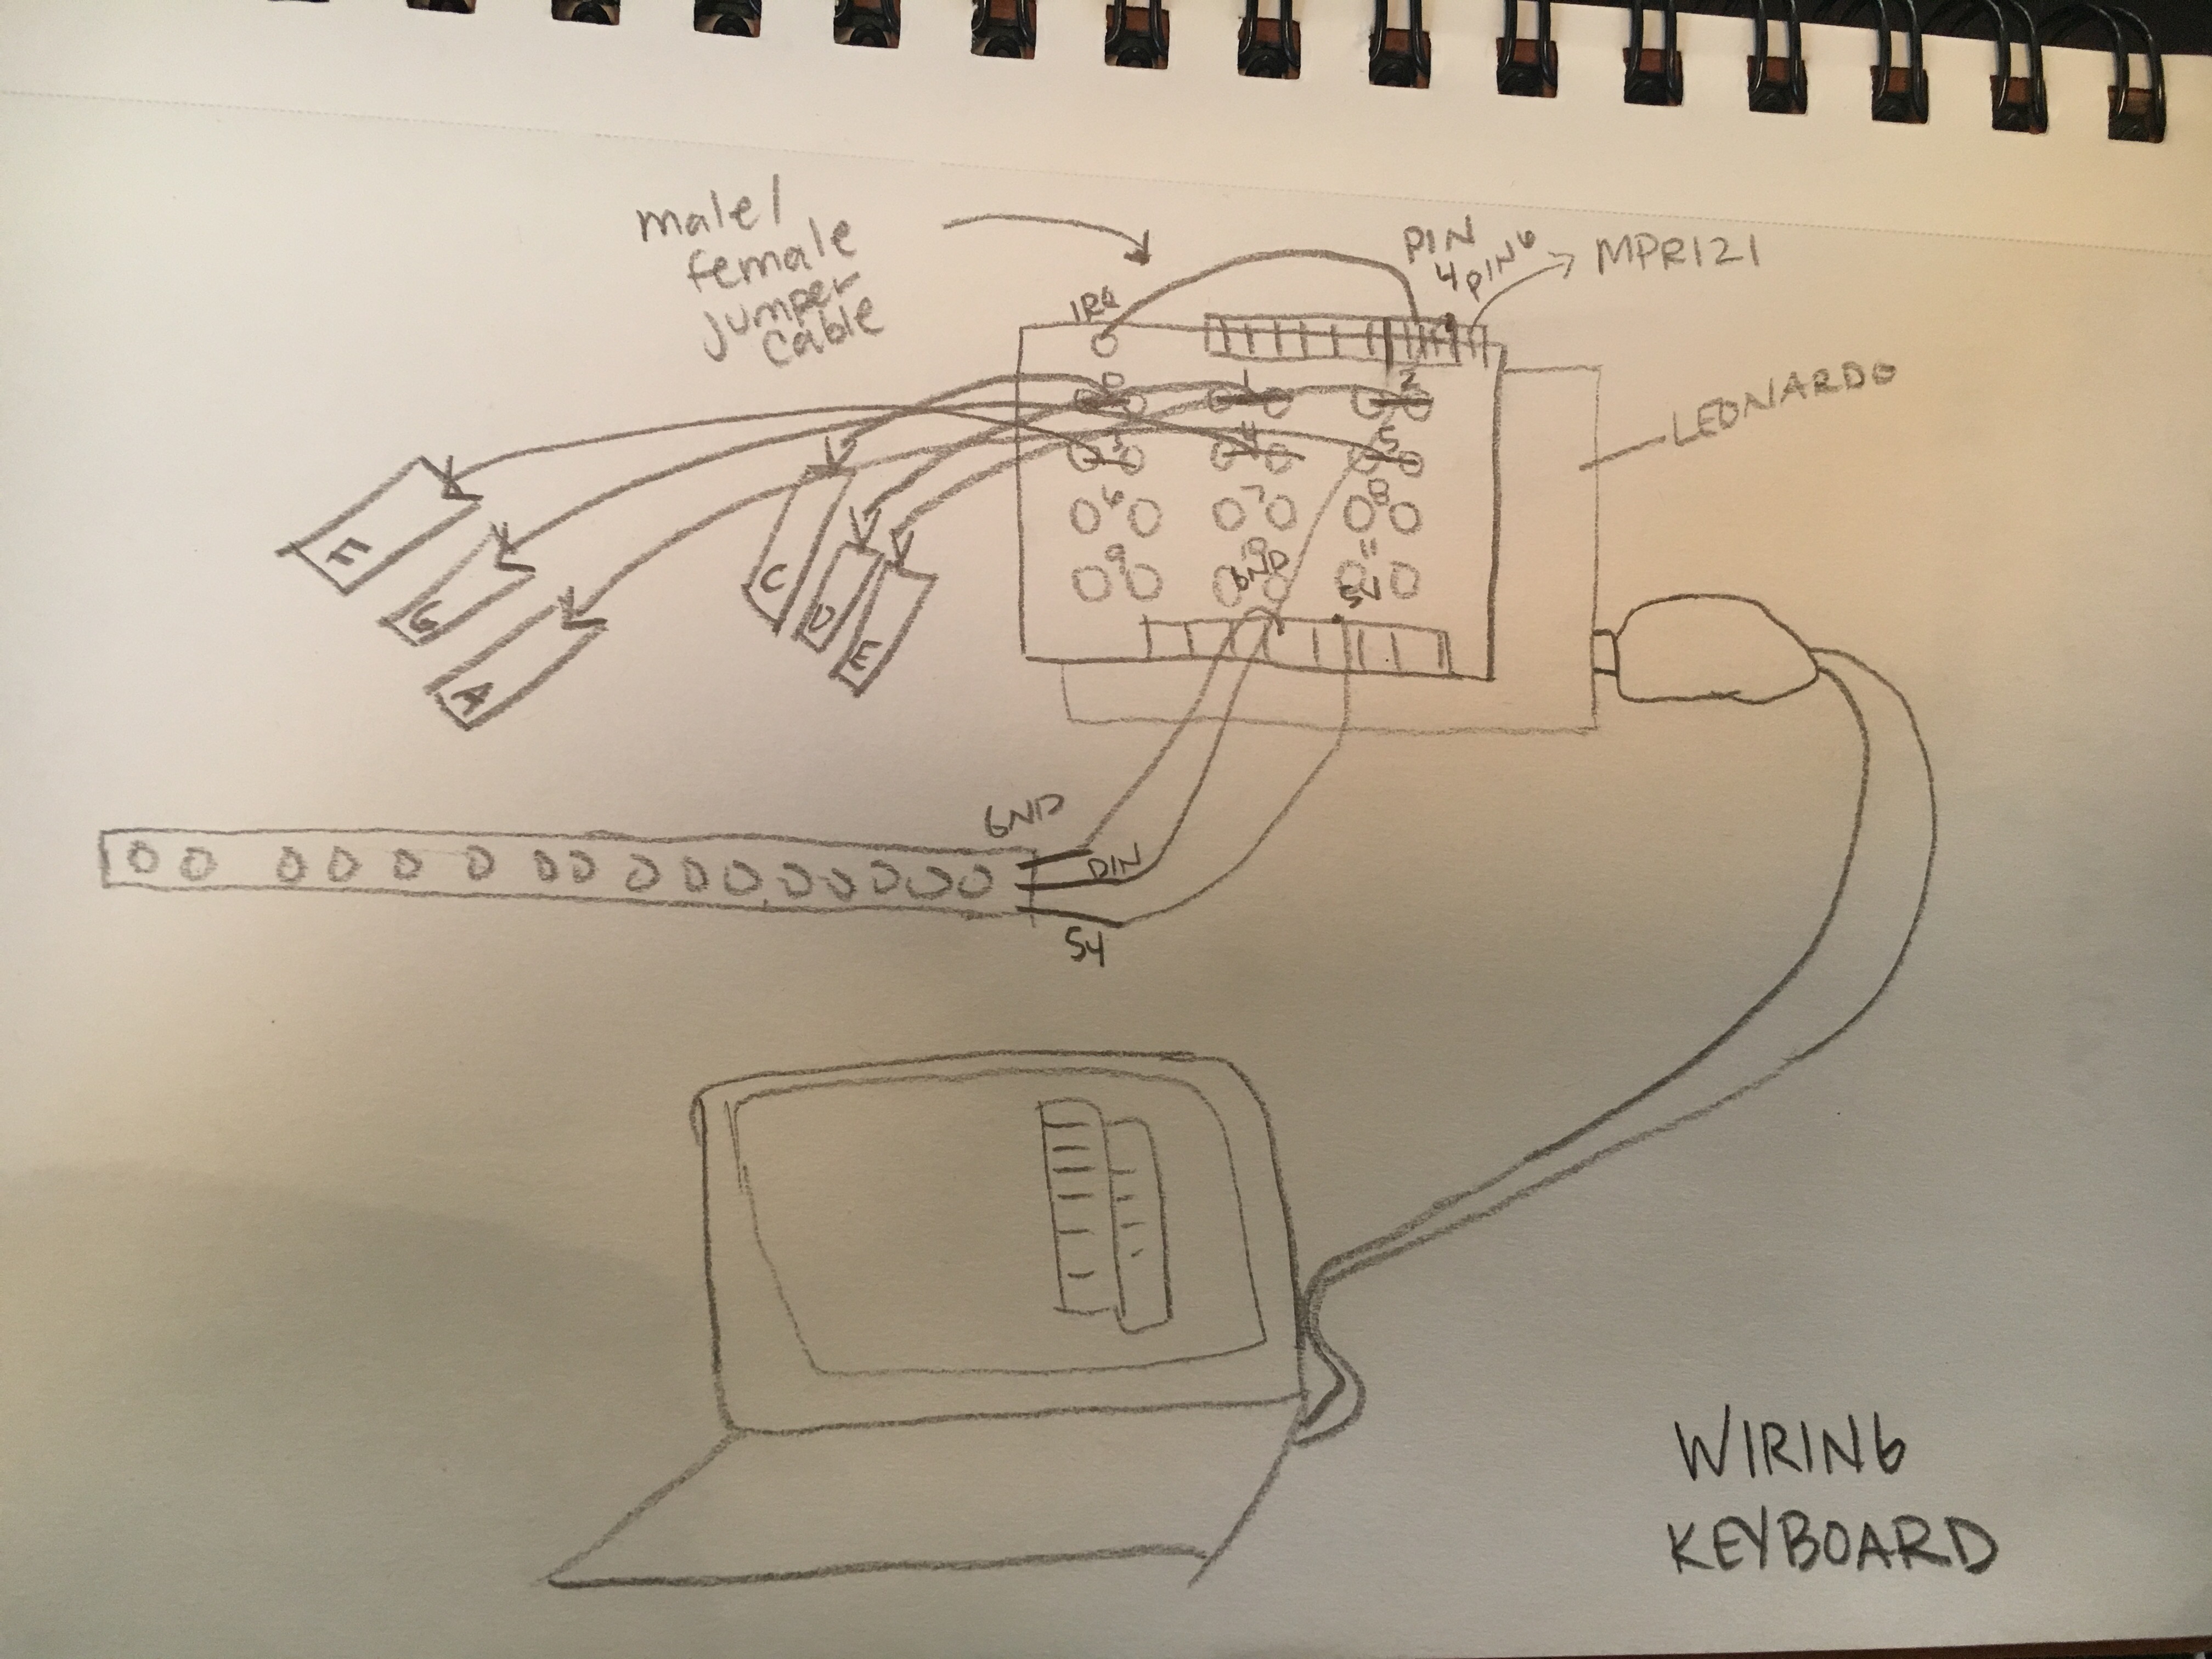 male/
female
jumper
cable
PIN
4 PIN 6
MPR121
IRQ
LEONARDO
0 1 2
3 4 5
6 7 8
9 10 11
GND 5V
F
G
A
C
D
E
GND
DIN
5V
WIRING
KEYBOARD